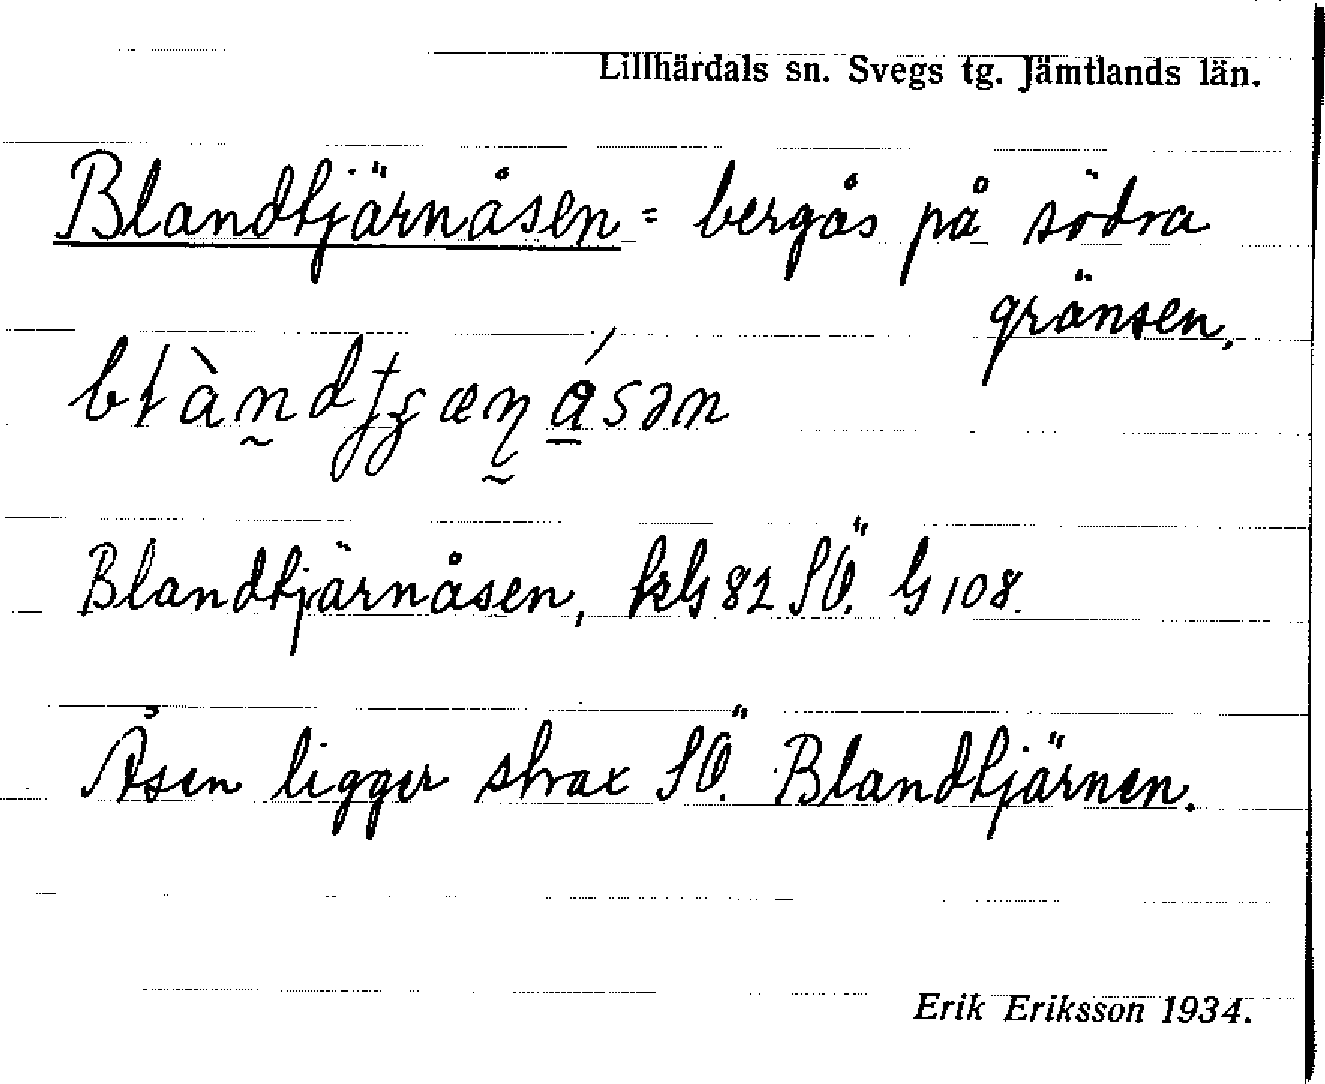 Lillhärdals sn. Svegs tg. Jämtlands län.
Blandtjärnåsen = bergås på södra
gränsen.
Blandtjärnåsen, kG 82 SÖ. G 108.
Åsen ligger strax SÖ. Blandtjärnen.
Erik Eriksson 1934.